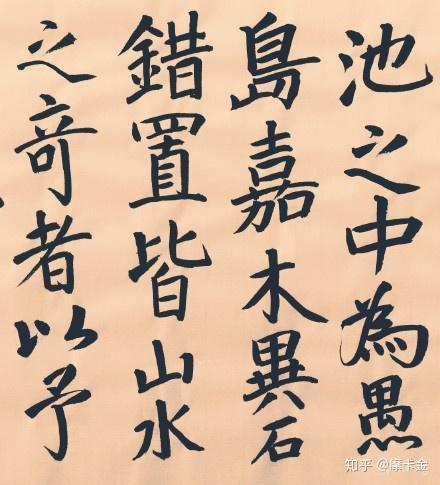 池之中為愚
島嘉木異石
錯置皆山水
之奇者以予
知乎 @摩卡金